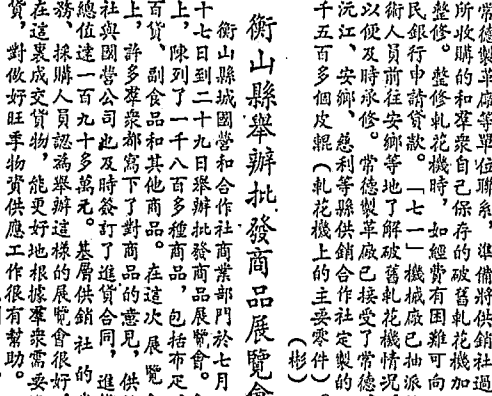 常德製革廠等單位聯系，準備將供銷社過
所收購的和羣衆自己保存的破舊軋花機加
整修。整修軋花機時，如經費有困難可向
民銀行申請貸款。「七一」機械廠已抽派
術人員前往安鄉等地了解破舊軋花機情况
以便及時承修。常德製革廠已接受了常德
沅江、安鄉、慈利等縣供銷合作社定製的
千五百多個皮輥（軋花機上的主要零件）。
（彬）
衡山縣舉辦批發商品展覽會
衡山縣城國營和合作社商業部門於七月
十七日到二十九日舉辦批發商品展覽會。
上，陳列了一千八百多種商品，包括布疋
百貨、副食品和其他商品。在這次展覽
上，許多羣衆都寫下了對商品的意見，供
社與國營公司也及時簽訂了進貨合同，進
總值達一百九十多萬元。基層供銷社的
務、採購人員認爲舉辦這樣的展覽會很好
在這裏成交貨物，能更好地根據羣衆需要
貨，對做好旺季物資供應工作很有幫助。